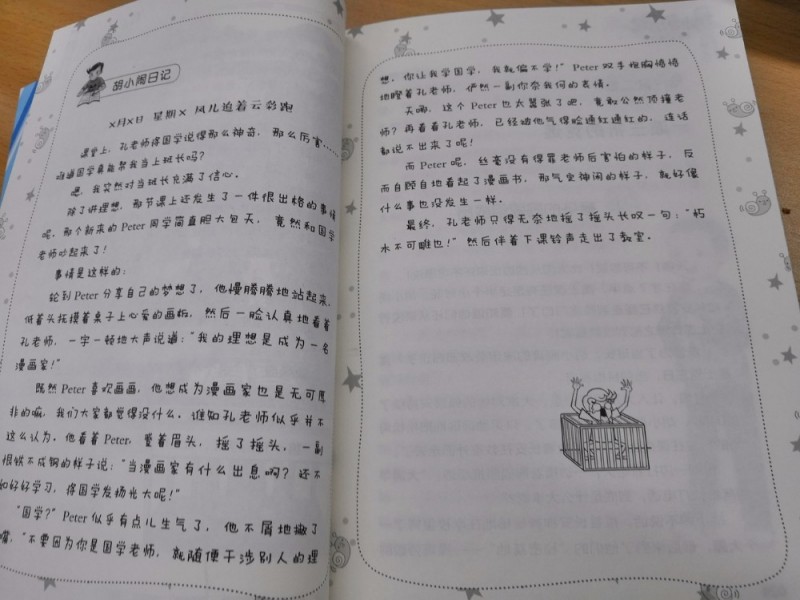 胡小闹日记
X月X日 星期X 风儿追着云务跑
课堂上，孔老师将国学说得那么神奇，那么厉害……
难道国学真能帮我当上班长吗？
嗯，我突然对当班长充满了信心。
除了讲理想，那节课上还发生了一件很出格的事情
呢，那个新来的Peter同学简直胆大包天，竟然和国学
老师吵起来了！
事情是这样的：
轮到Peter分享自己的梦想了，他慢腾腾地站起来，
低着头抚摸着桌子上心爱的画板，然后一脸认真地看着
孔老师，一字一顿地大声说道：“我的理想是成为一名
漫画家！”
既然Peter喜欢画画，他想成为漫画家也是无可厚
非的嘛，我们大家都觉得没什么。谁知孔老师似乎并不
这么认为。他看着Peter，皱着眉头，摇了摇头，一副
恨铁不成钢的样子说：“当漫画家有什么出息啊？还不
如好好学习，将国学发扬光大呢！”
“国学？”Peter似乎有点儿生气了，他不屑地撇了
嘴，“不要因为你是国学老师，就随便干涉别人的理
想，你让我学国学，我就偏不学！”Peter双手抱胸愤愤
地瞪着孔老师，俨然一副你奈我何的表情。
天哪，这个Peter也太嚣张了吧，竟敢公然顶撞老
师？再看看孔老师，已经被他气得脸通红通红的，连话
都说不出来了呢！
而Peter呢，丝毫没有得罪老师后害怕的样子，反
而自顾自地看起了漫画书，那气定神闲的样子，就好像
什么事也没发生一样。
最终，孔老师只得无奈地摇了摇头长叹一句：“朽
木不可雕也！”然后伴着下课铃声走出了教室。